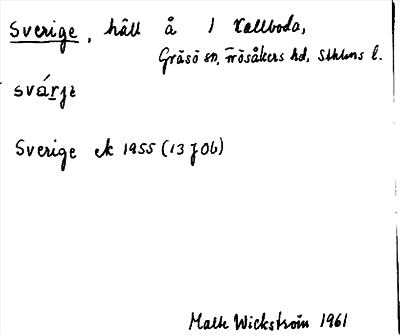 Sverige, håll å 1 Kallboda,
Gräsö sn, Frösåkers hd, Sthlms l.
svárje
Sverige ek 1955 (13 J 0b)
Malte Wickström 1961